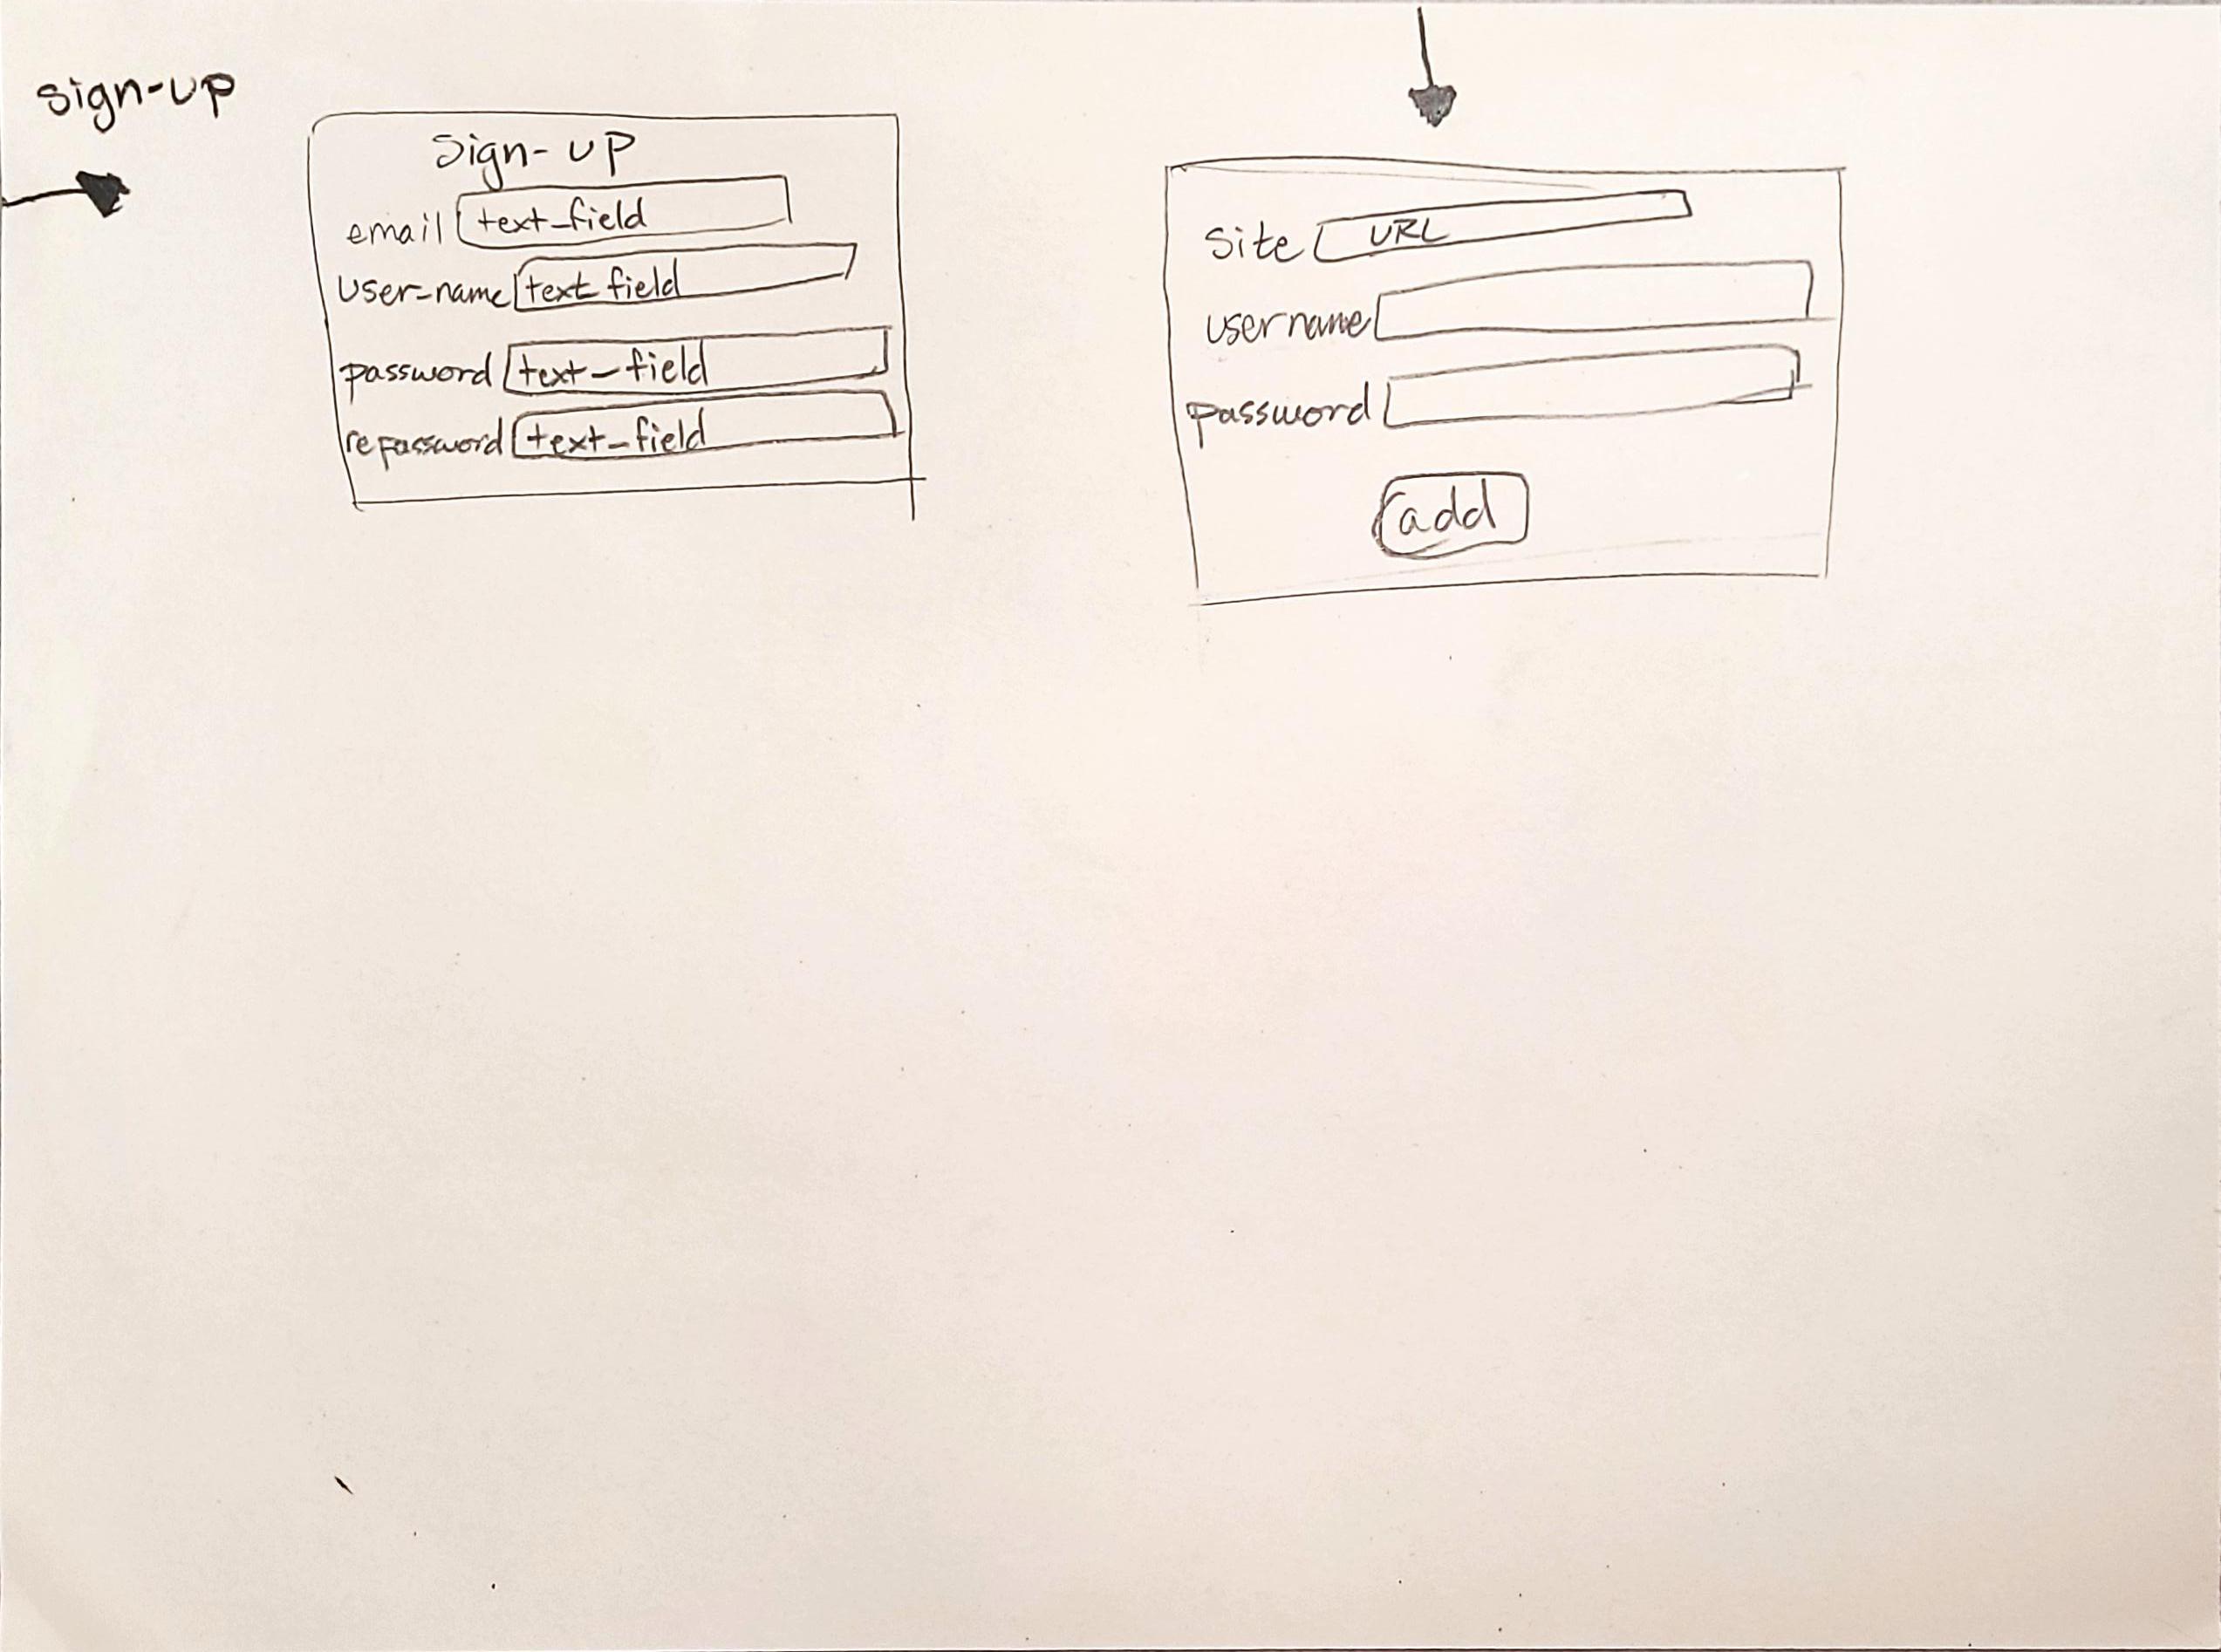 sign-up
Sign-up
email text-field
user-name text-field
password text-field
repassword text-field
Site URL
username
password
add